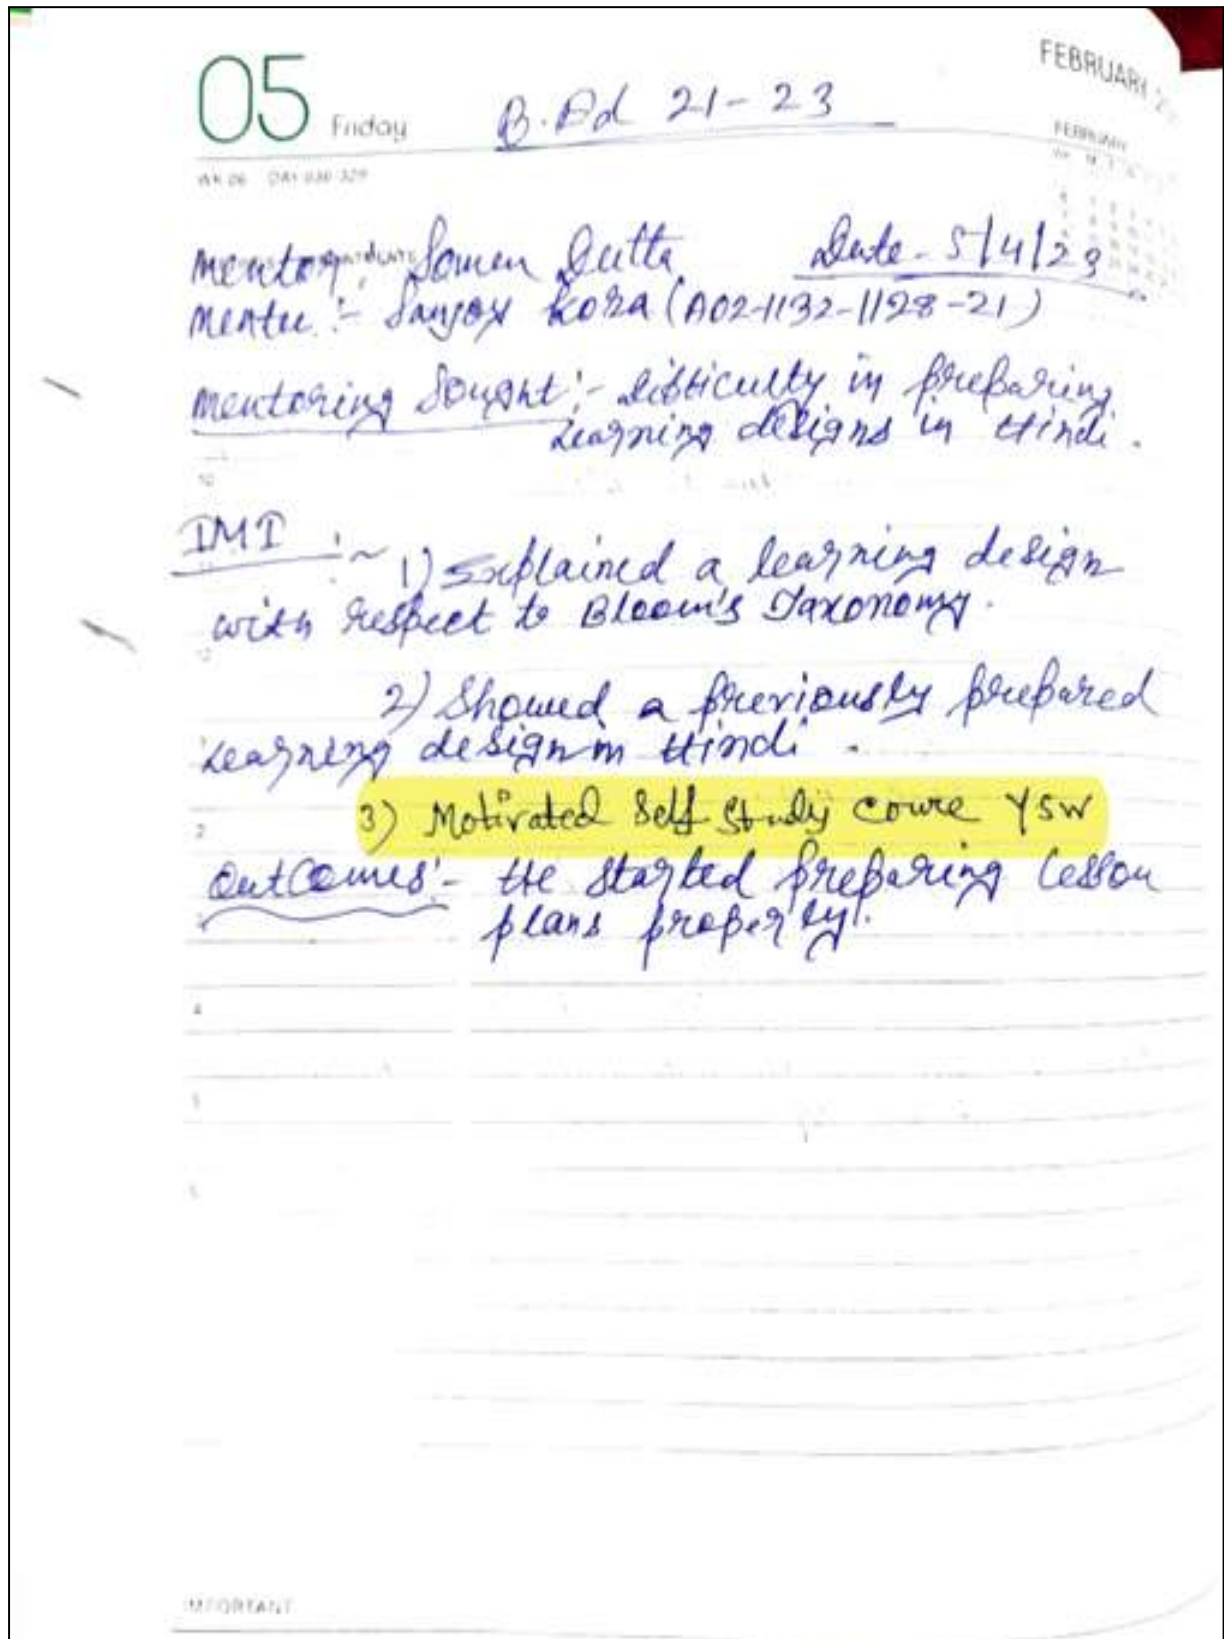 FEBRUARY
05 Friday B.Ed 21-23
FEBRUARY
Mentor: Somen Dutta Date - 5/4/23
Mentee :- Sanjoy Kora (A02-1132-1128-21)
Mentoring Sought :- Difficulty in preparing
Learning designs in Hindi.
IMI :~ 1) Explained a learning design
with respect to Bloom's Taxonomy.
2) Showed a previously prepared
Learning design in Hindi.
2
3) Motivated Self Study Course YSW
OutComes :- He started preparing lesson
plans properly.
4
5
IMPORTANT